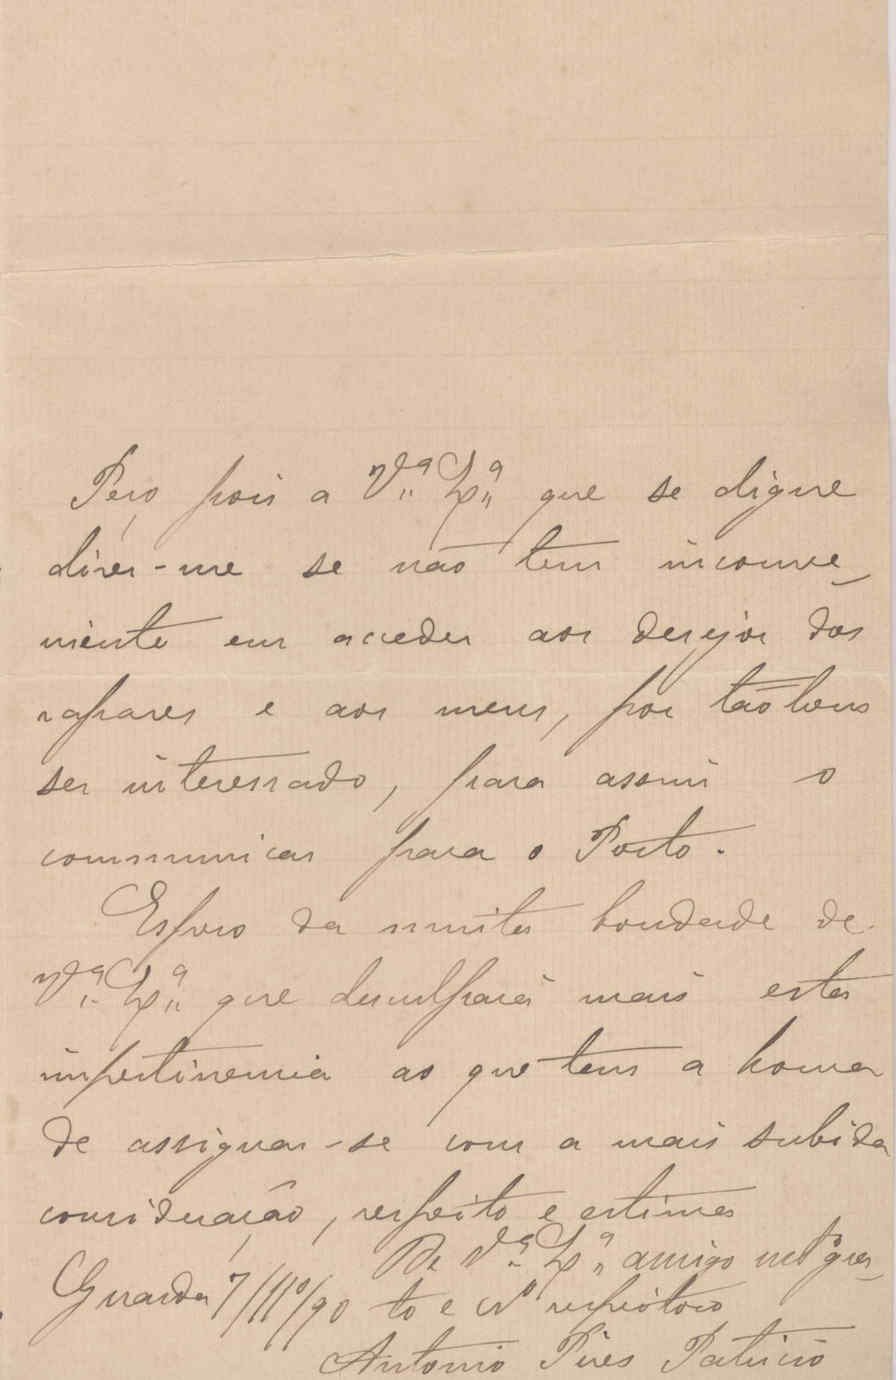 Peço pois a V.ª Ex.ª que se digne
dizer-me se não tem inconve-
niente em acceder aos desejos dos
rapazes e aos meus, por tãobem
ser interessado, para assim o
communicar para o Porto.
Espero da muita bondade de
V.ª Ex.ª que desculpará mais esta
impertinencia ao que tem a honra
de assignar-se com a mais subida
consideração, respeito e estima
De V.ª Ex.ª amigo mtº gra-
Guarda 7/11º/90 to e cr.º respeitoso
Antonio Pires Patricio